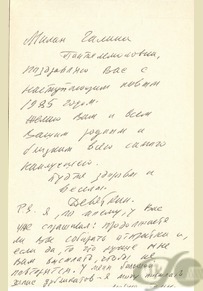 Милая Галина
Пантелеймоновна,
поздравляю Вас с
наступающим новым
1985 годом.
Желаю Вам и всем
Вашим родным и
близким всего самого
наилучшего.
Будте здоровы и
веселы.
Девяткин.
P.S. Я, по-моему, у Вас
уже спрашивал: продолжаете
ли Вы собирать открытки и,
если да, то что лучше мне
Вам выслать, чтобы не
повторяться. У меня большой